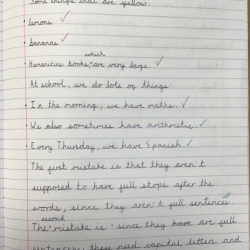 Some things that are yellow:
• lemons
• bananas
which
• Humanities books, are very large.
At school, we do lots of things
• In the morning, we have maths.
• We also sometimes have arithmetic.
• Every Thursday, we have Spanish
The first mistake is that they aren't
supposed to have full stops after the
words, since they aren't full sentences.
second
The mistake is since they have are full
sentences, they need capital letters and